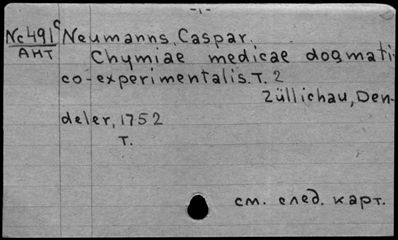 -1-
Nc491c Neumanns, Caspar.
АНТ Chymiae medicae dogmati-
co-experimentalis. T. 2
Züllichau, Den-
deler, 1752
T.
см. след. карт.